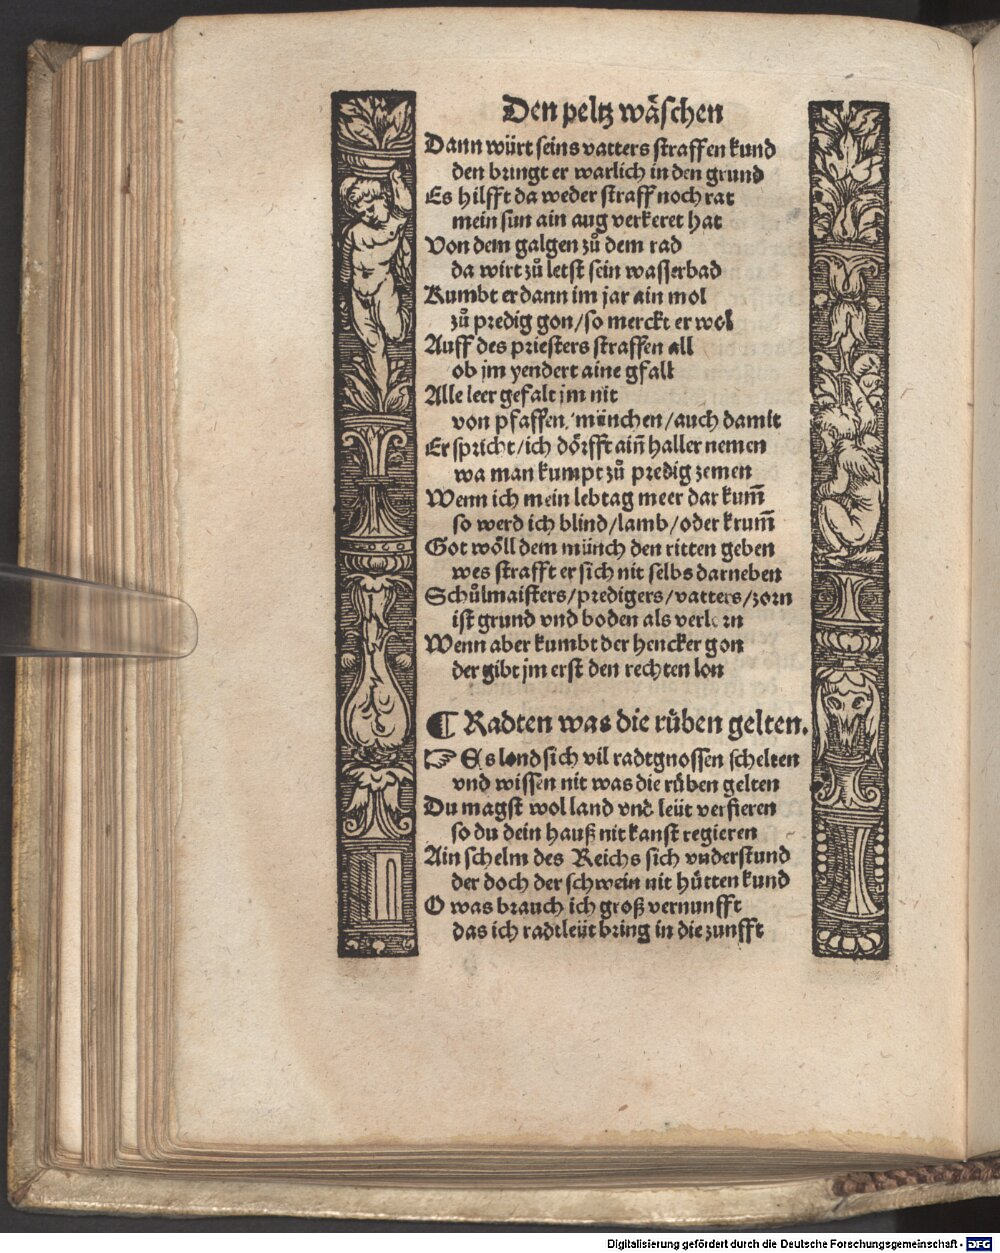 Den peltz wäschen
Dann würt seins vatters straffen kund
den bringt er warlich in den grund
Es hilfft da weder straff noch rat
mein sun ain aug verkeret hat
Von dem galgen zů dem rad
da wirt zů letst sein wasserbad
Kumbt er dann im jar ain mol
zů predig gon/so merckt er wol
Auff des priesters straffen all
ob jm yendert aine gfall
Alle leer gefalt jm nit
von pfaffen/münchen/auch damit
Er spricht/ich dörfft ain̄ haller nemen
wa man kumpt zů predig zemen
Wenn ich mein lebtag meer dar kum̄
so werd ich blind/lamb/oder krum̄
Got wöll dem münch den ritten geben
wes strafft er sich nit selbs darneben
Schůlmaisters/predigers/vatters/zorn
ist grund vnd boden als verlorn
Wenn aber kumbt der hencker gon
der gibt jm erst den rechten lon
¶ Radten was die rüben gelten.
☞ Es lond sich vil radtgnossen schelten
vnd wissen nit was die rüben gelten
Du magst wol land vnd leüt verfieren
so du dein hauß nit kanst regieren
Ain schelm des Reichs sich vnderstund
der doch der schwein nit hütten kund
O was brauch ich groß vernunfft
das ich radtleüt bring in die zunfft
Digitalisierung gefördert durch die Deutsche Forschungsgemeinschaft - DFG